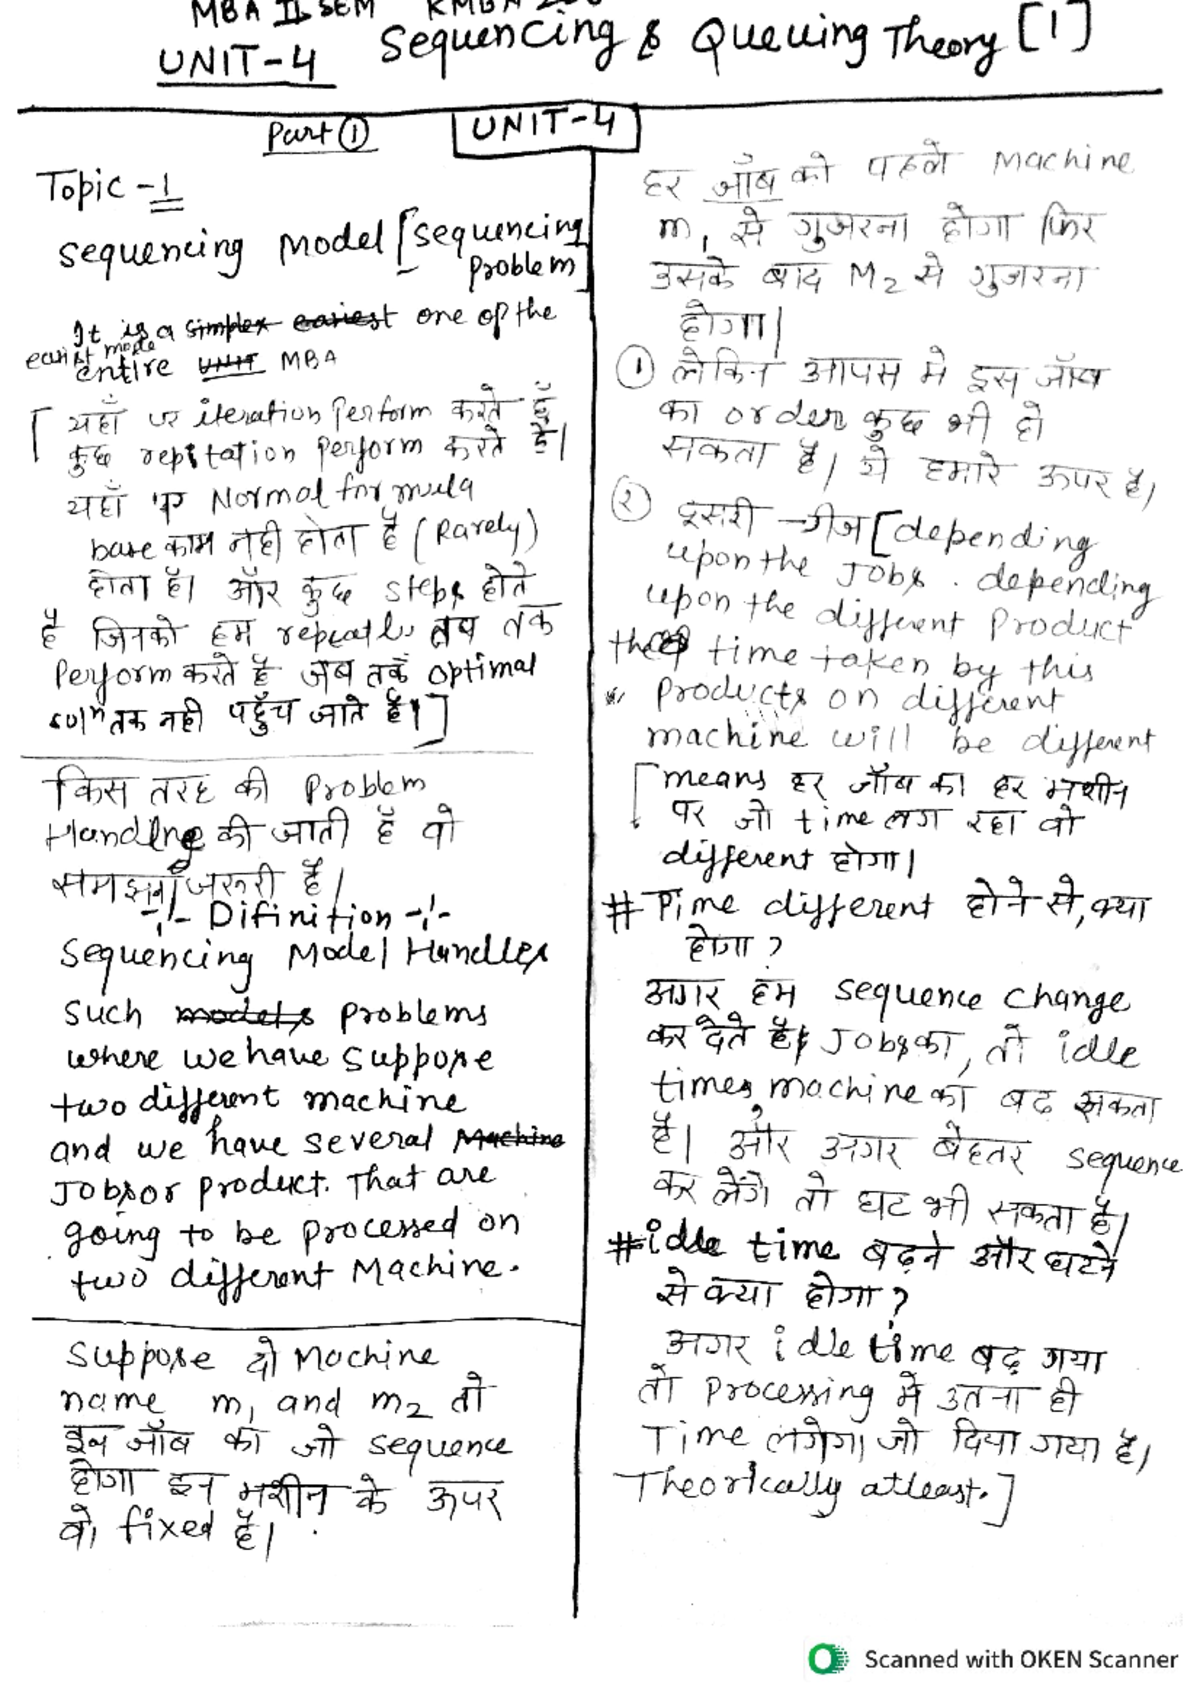 MBA II SEM KMBN
UNIT-4 Sequencing & Queuing Theory [1]
Part ①
UNIT-4
Topic -1
Sequencing Model [Sequencing
Problem]
It is a simplex easiest one of the
easist mode
entire UNIT MBA
[ यहाँ पर iteration Perform करते हैं
कुछ repitation Perform करते है।
यहाँ पर Normal formula
base काम नही होता है (Rarely)
होता है। और कुछ steps होते
है जिनको हम repeatly तब तक
Perform करते है जब तक optimal
solⁿ तक नही पहुँच जाते है।]
किस तरह की Problem
Handlng की जाती है वो
समझना जरूरी है।
-:- Difinition -:-
Sequencing Model Handles
Such models Problems
where we have Suppose
two different machine
and we have several Machine
Jobs or Product. That are
going to be processed on
two different Machine.
Suppose दो Machine
name m₁ and m₂ तो
इन जॉब का जो sequence
होगा इन मशीन के ऊपर
वो fixed है।
हर जॉब को पहले Machine
m₁ से गुजरना होगा फिर
उसके बाद M₂ से गुजरना
होगा।
① लेकिन आपस मे इस जॉब
का order कुछ भी हो
सकता है। ये हमारे ऊपर है।
② दूसरी चीज [depending
upon the Jobs. depending
upon the different Product
the time taken by this
Products on different
machine will be different
[means हर जॉब का हर मशीन
पर जो time लग रहा वो
different होगा।
# Time different होने से, क्या
होगा ?
अगर हम sequence change
कर देते है Jobs का, तो idle
times machine का बढ़ सकता
है। और अगर बेहतर sequence
कर लेंगे तो घट भी सकता है।
# idle time बढ़ने और घटने
से क्या होगा ?
अगर idle time बढ़ गया
तो Processing मे उतना ही
Time लगेगा जो दिया गया है।
Theorically atleast.]
Scanned with OKEN Scanner